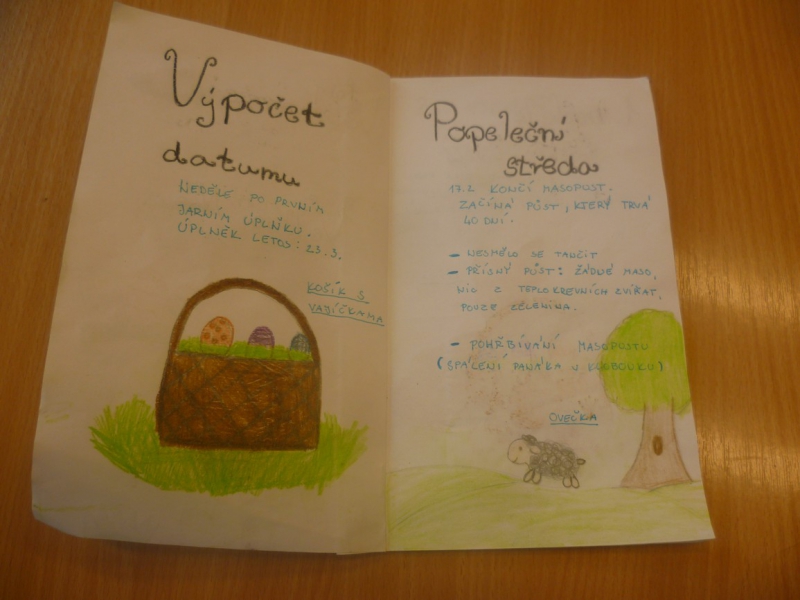 Výpočet
datumu
NEDĚLE PO PRVNÍM
JARNÍM ÚPLŇKU.
ÚPLNĚK LETOS: 23.3.
KOŠÍK S
VAJÍČKAMA
Popeleční
středa
17.2 KONČÍ MASOPUST.
ZAČÍNÁ PŮST, KTERÝ TRVÁ
40 DNÍ.
- NESMĚLO SE TANČIT
- PŘÍSNÝ PŮST: ŽÁDNÉ MASO,
NIC Z TEPLOKREVNÍCH ZVÍŘAT,
POUZE ZELENINA.
- POHŘBÍVÁNÍ MASOPUSTU
(SPÁLENÍ PANÁKA V KLOBOUKU)
OVEČKA